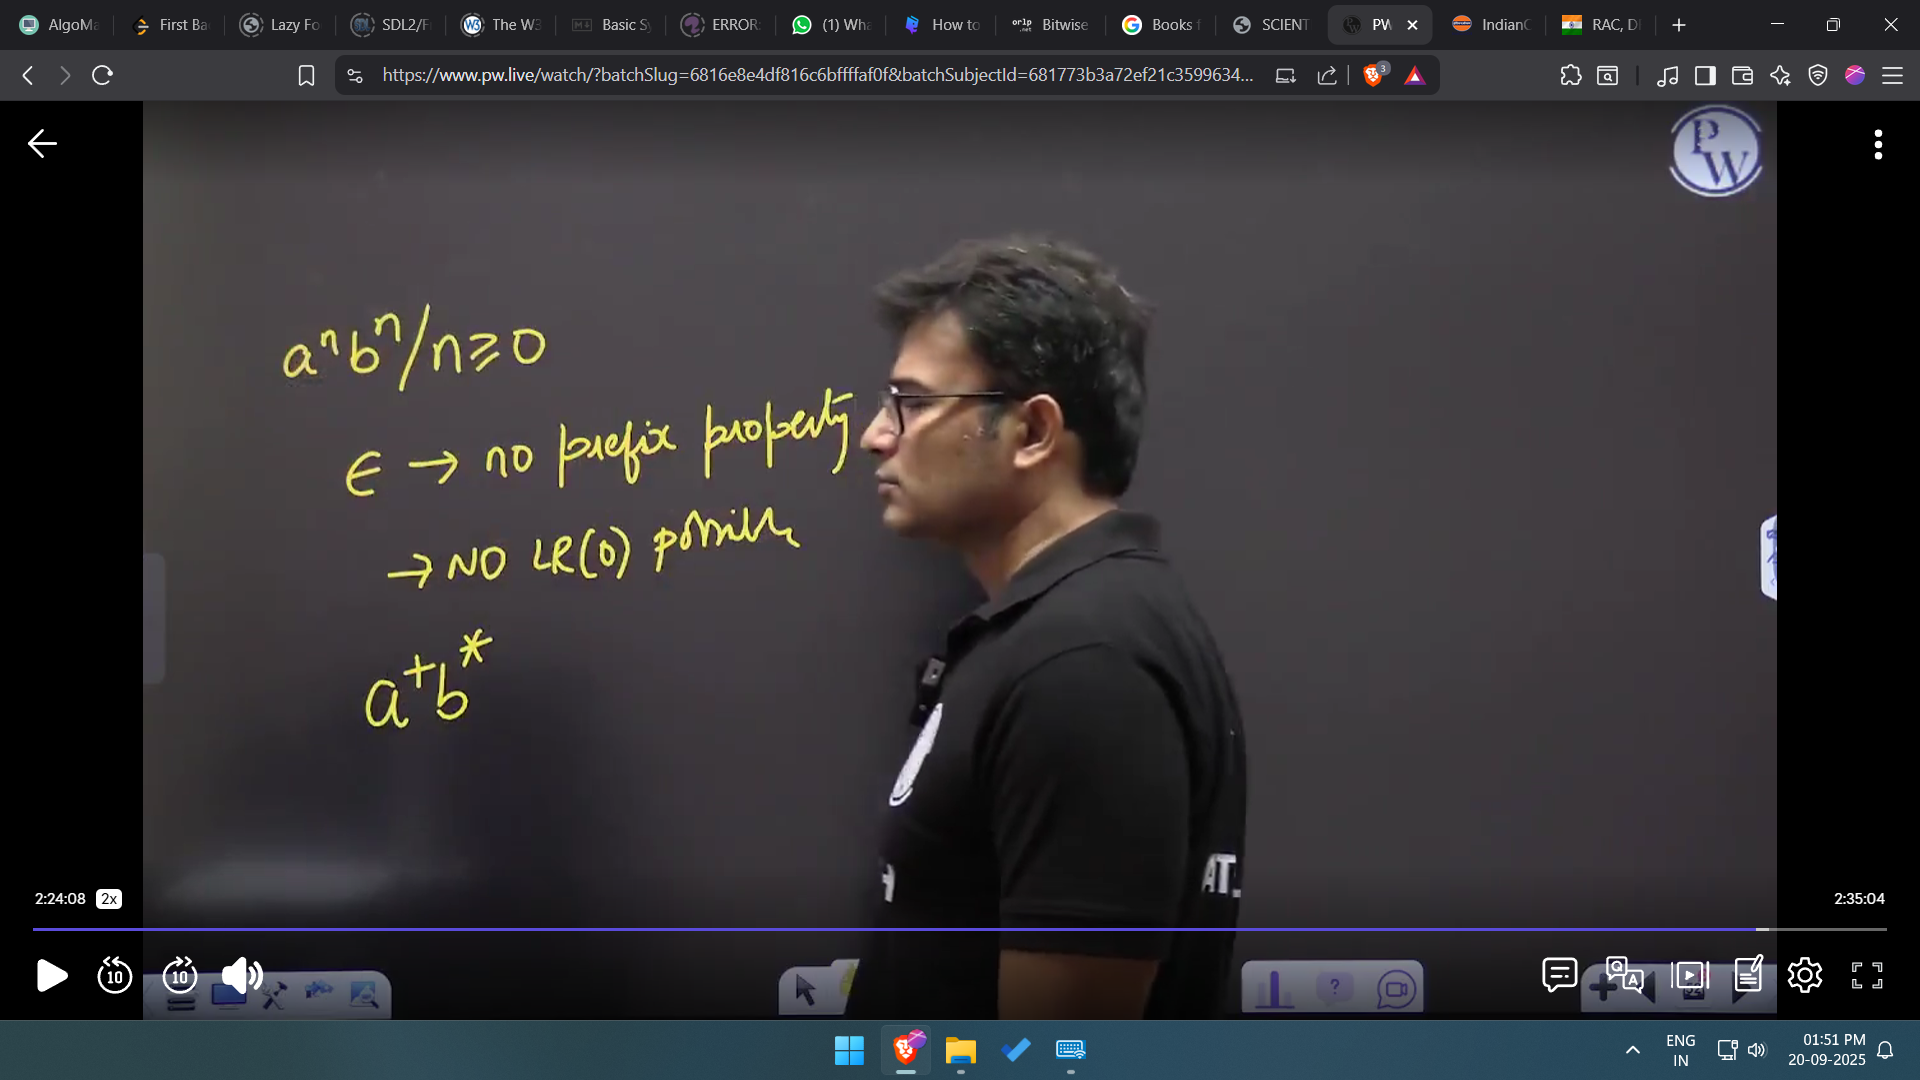 AlgoMa
First Ba
Lazy Fo
SDL2/F
The W3
Basic Sy
ERROR:
(1) Wha
How to
Bitwise
Books f
SCIENT
PW
IndianO
RAC, D
https://www.pw.live/watch/?batchSlug=6816e8e4df816c6bffffaf0f&batchSubjectId=681773b3a72ef21c3599634...
3
PW
aⁿbⁿ/n≥0
ϵ → no prefix property
→ NO LR(0) possible
a⁺b*
AT
2:24:08 2x
2:35:04
10
10
ENG
IN
01:51 PM
20-09-2025